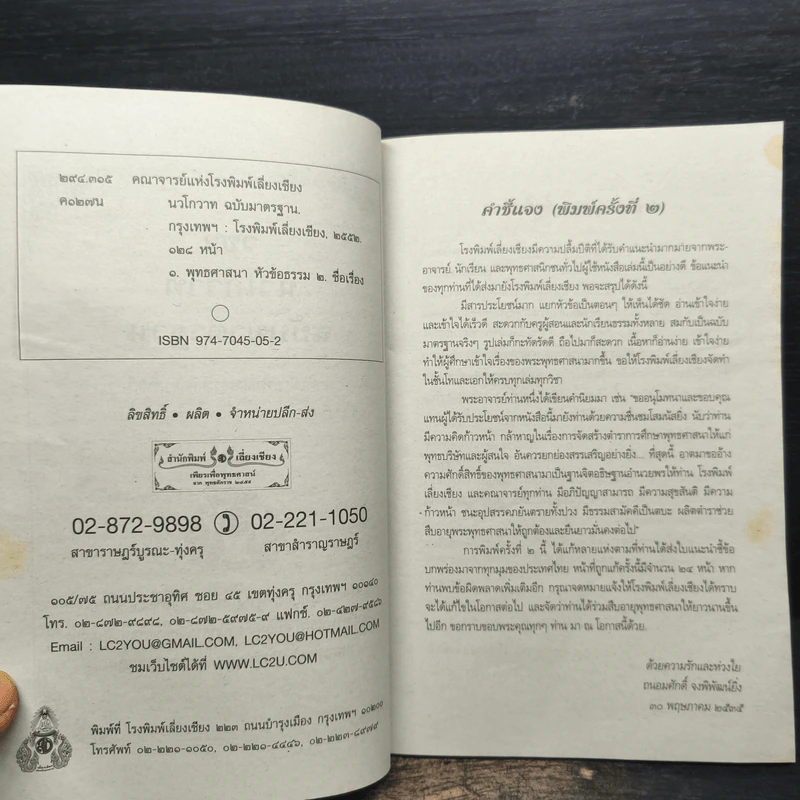 ๒๙๔.๓๑๕ คณาจารย์แห่งโรงพิมพ์เลี่ยงเชียง
ค๑๒๗น นวโกวาท ฉบับมาตรฐาน.
กรุงเทพฯ : โรงพิมพ์เลี่ยงเชียง, ๒๕๕๒.
๑๒๘ หน้า
๑. พุทธศาสนา หัวข้อธรรม ๒. ชื่อเรื่อง
ISBN 974-7045-05-2
ลิขสิทธิ์ • ผลิต • จำหน่ายปลีก-ส่ง
สำนักพิมพ์ เลี่ยงเชียง
เพียรเพื่อพุทธศาสน์
02-872-9898 02-221-1050
สาขาราษฎร์บูรณะ-ทุ่งครุ สาขาสำราญราษฎร์
๑๐๕/๗๕ ถนนประชาอุทิศ ซอย ๔๕ เขตทุ่งครุ กรุงเทพฯ ๑๐๑๔๐
โทร. ๐๒-๘๗๒-๙๘๙๘, ๐๒-๘๗๒-๕๙๗๕-๙ แฟกซ์. ๐๒-๔๒๗-๙๕๘๖
Email : LC2YOU@GMAIL.COM, LC2YOU@HOTMAIL.COM
ชมเว็บไซต์ได้ที่ WWW.LC2U.COM
พิมพ์ที่ โรงพิมพ์เลี่ยงเชียง ๒๒๓ ถนนบำรุงเมือง กรุงเทพฯ ๑๐๒๐๐
โทรศัพท์ ๐๒-๒๒๑-๑๐๕๐, ๐๒-๒๒๑-๔๔๔๖, ๐๒-๒๒๓-๘๙๗๙
คำชี้แจง (พิมพ์ครั้งที่ ๒)
โรงพิมพ์เลี่ยงเชียงมีความปลื้มปีติที่ได้รับคำแนะนำมากมายจากพระ-
อาจารย์ นักเรียน และพุทธศาสนิกชนทั่วไปผู้ใช้หนังสือเล่มนี้เป็นอย่างดี ข้อแนะนำ
ของทุกท่านที่ได้ส่งมายังโรงพิมพ์เลี่ยงเชียง พอจะสรุปได้ดังนี้
มีสารประโยชน์มาก แยกหัวข้อเป็นตอนๆ ให้เห็นได้ชัด อ่านเข้าใจง่าย
และเข้าใจได้เร็วดี สะดวกกับครูผู้สอนและนักเรียนธรรมทั้งหลาย สมกับเป็นฉบับ
มาตรฐานจริงๆ รูปเล่มก็กะทัดรัดดี ถือไปมาก็สะดวก เนื้อหาก็อ่านง่าย เข้าใจง่าย
ทำให้ผู้ศึกษาเข้าใจเรื่องของพระพุทธศาสนามากขึ้น ขอให้โรงพิมพ์เลี่ยงเชียงจัดทำ
ในชั้นโทและเอกให้ครบทุกเล่มทุกวิชา
พระอาจารย์ท่านหนึ่งได้เขียนคำนิยมมา เช่น "ขออนุโมทนาและขอบคุณ
แทนผู้ได้รับประโยชน์จากหนังสือนี้มายังท่านด้วยความชื่นชมโสมนัสยิ่ง นับว่าท่าน
มีความคิดก้าวหน้า กล้าหาญในเรื่องการจัดสร้างตำราการศึกษาพุทธศาสนาให้แก่
พุทธบริษัทและผู้สนใจ อันควรยกย่องสรรเสริญอย่างยิ่ง... ที่สุดนี้ อาตมาขออ้าง
ความศักดิ์สิทธิ์ของพุทธศาสนามาเป็นฐานจิตอธิษฐานอำนวยพรให้ท่าน โรงพิมพ์
เลี่ยงเชียง และคณาจารย์ทุกท่าน มีอภิปัญญาสามารถ มีความสุขสันติ มีความ
ก้าวหน้า ชนะอุปสรรคภยันตรายทั้งปวง มีธรรมสามัคคีเป็นตบะ ผลิตตำราช่วย
สืบอายุพระพุทธศาสนาให้ถูกต้องและยืนยาวมั่นคงต่อไป"
การพิมพ์ครั้งที่ ๒ นี้ ได้แก้หลายแห่งตามที่ท่านได้ส่งใบแนะนำชี้ข้อ
บกพร่องมาจากทุกมุมของประเทศไทย หน้าที่ถูกแก้ครั้งนี้มีจำนวน ๒๔ หน้า หาก
ท่านพบข้อผิดพลาดเพิ่มเติมอีก กรุณาจดหมายแจ้งให้โรงพิมพ์เลี่ยงเชียงได้ทราบ
จะได้แก้ไขในโอกาสต่อไป และจัดว่าท่านได้ร่วมสืบอายุพุทธศาสนาให้ยาวนานขึ้น
ไปอีก ขอกราบขอบพระคุณทุกๆ ท่าน มา ณ โอกาสนี้ด้วย.
ด้วยความรักและห่วงใย
ถนอมศักดิ์ จงพิพัฒน์ยิ่ง
๓๐ พฤษภาคม ๒๕๓๕